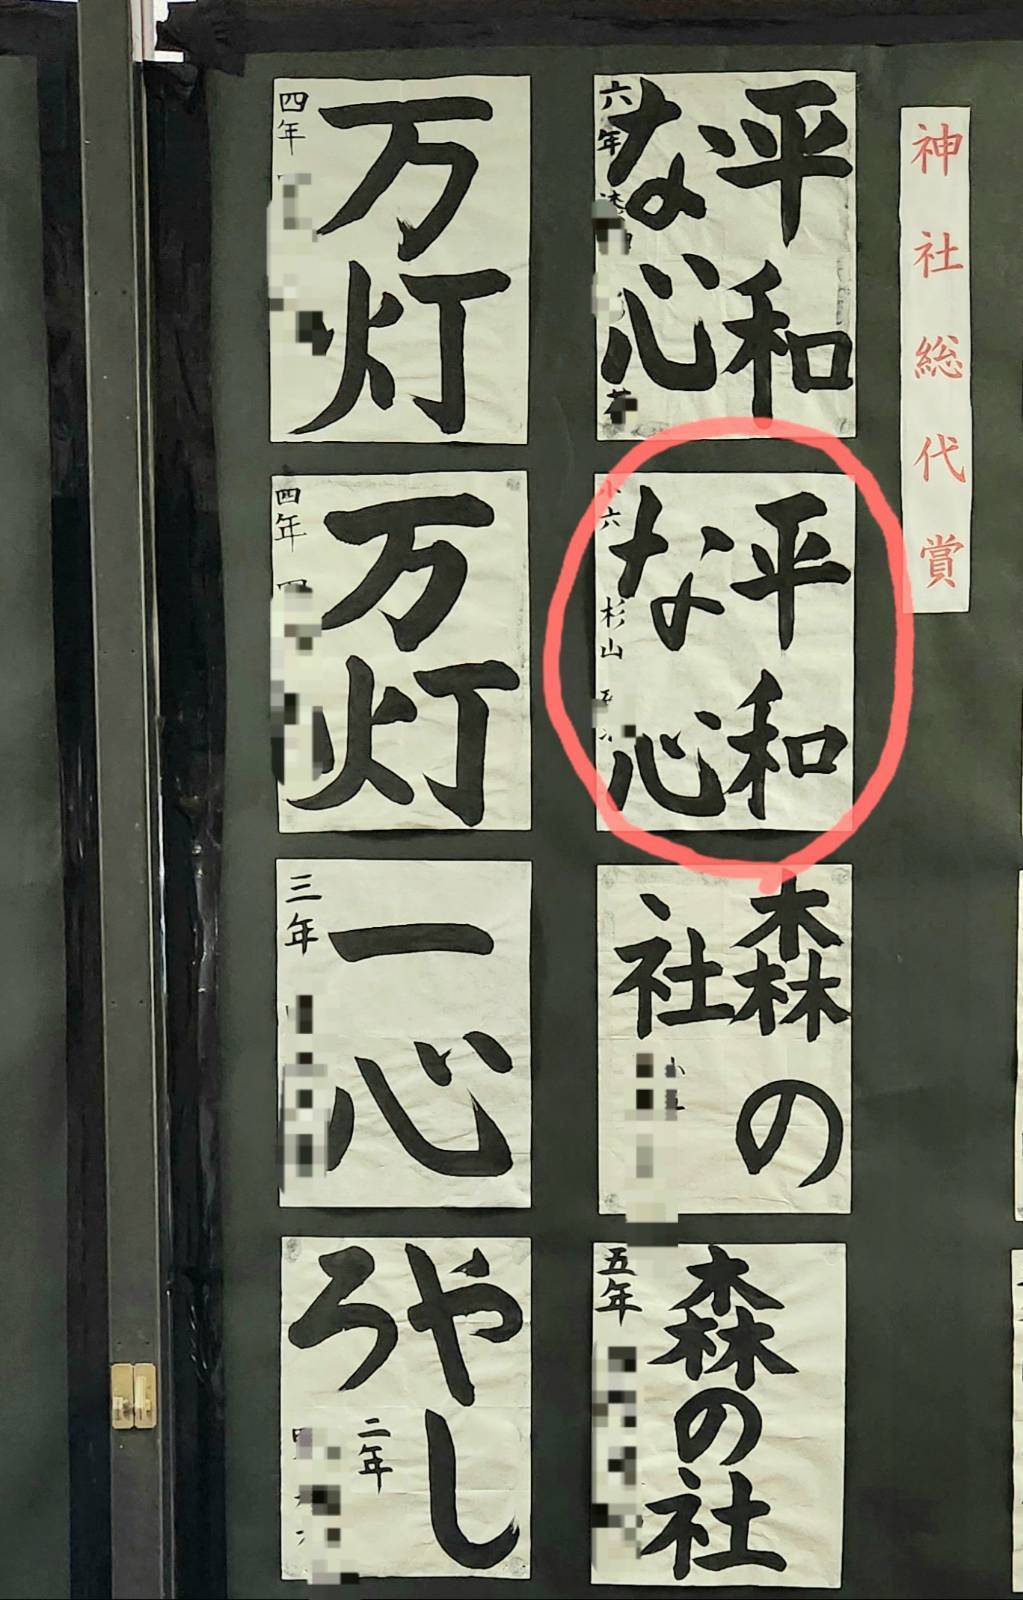 神社総代賞
平和
な心
六年
平和
な心
小六 杉山
森の
社
小五
森の社
五年
万灯
四年
万灯
四年
一心
三年
やし
ろ
二年